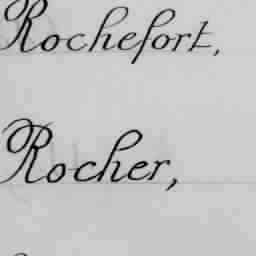 Rochefort,
Rocher,